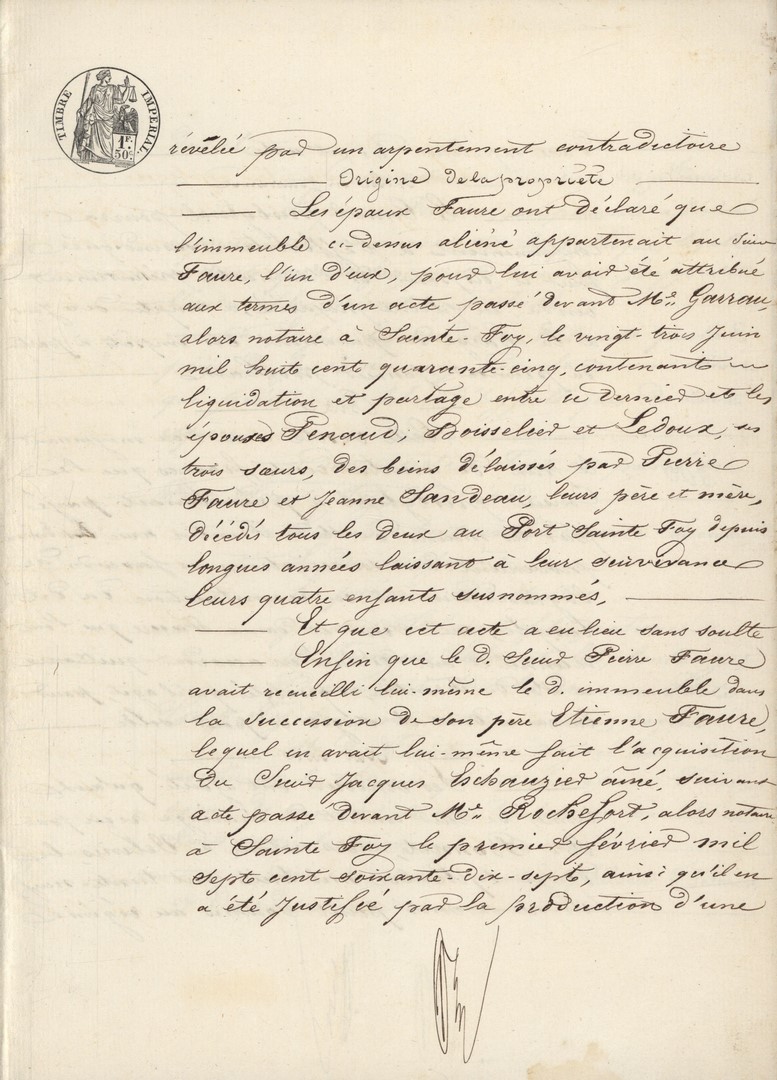 TIMBRE IMPERIAL.
1F.
50c.
révélée par un arpentement contradictoire
Origine de la propriété
Les époux Faure ont déclaré que
l'immeuble ci-dessus aliéné appartenait au sieur
Faure, l'un d'eux, pour lui avoir été attribué
aux termes d'un acte passé devant Me. Garrau,
alors notaire à Sainte-Foy, le vingt-trois Juin
mil huit cent quarante-cinq, contenant
liquidation et partage entre ce dernier et les
épouses Penaud, Boisselier et Ledoux, ses
trois sœurs, des biens délaissés par Pierre
Faure et Jeanne Sandeau, leurs père et mère,
décédés tous les deux au Port Sainte Foy depuis
longues années laissant à leur survivance
leurs quatre enfants susnommés,
Et que cet acte a eu lieu sans soulte
Enfin que le d. Sieur Pierre Faure
avait recueilli lui-même le d. immeuble dans
la succession de son père Etienne Faure,
lequel en avait lui-même fait l'acquisition
du Sieur Jacques Eschauzier aîné, suivant
acte passé devant Me. Rochefort, alors notaire
à Sainte Foy le premier février mil
sept cent soixante-dix-sept, ainsi qu'il en
a été Justifié par la production d'une